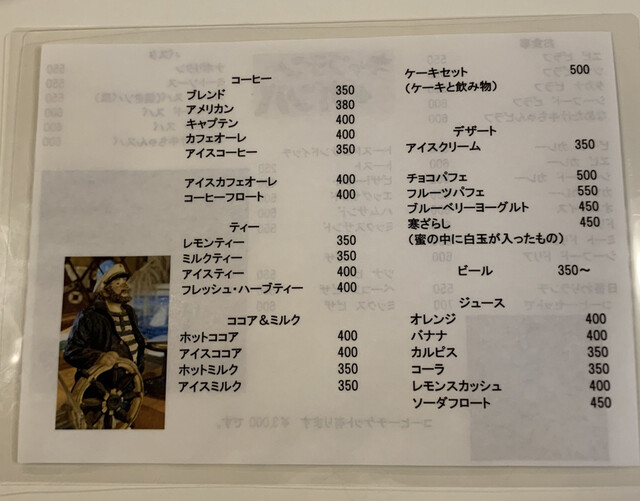 コーヒー
ブレンド 350
アメリカン 380
キャプテン 400
カフェオーレ 400
アイスコーヒー 350
アイスカフェオーレ 400
コーヒーフロート 400
ティー
レモンティー 350
ミルクティー 350
アイスティー 400
フレッシュ・ハーブティー 400
ココア＆ミルク
ホットココア 400
アイスココア 400
ホットミルク 350
アイスミルク 350
ケーキセット 500
(ケーキと飲み物)
デザート
アイスクリーム 350
チョコパフェ 500
フルーツパフェ 550
ブルーベリーヨーグルト 450
寒ざらし 450
(蜜の中に白玉が入ったもの)
ビール 350～
ジュース
オレンジ 400
バナナ 400
カルピス 350
コーラ 350
レモンスカッシュ 400
ソーダフロート 450